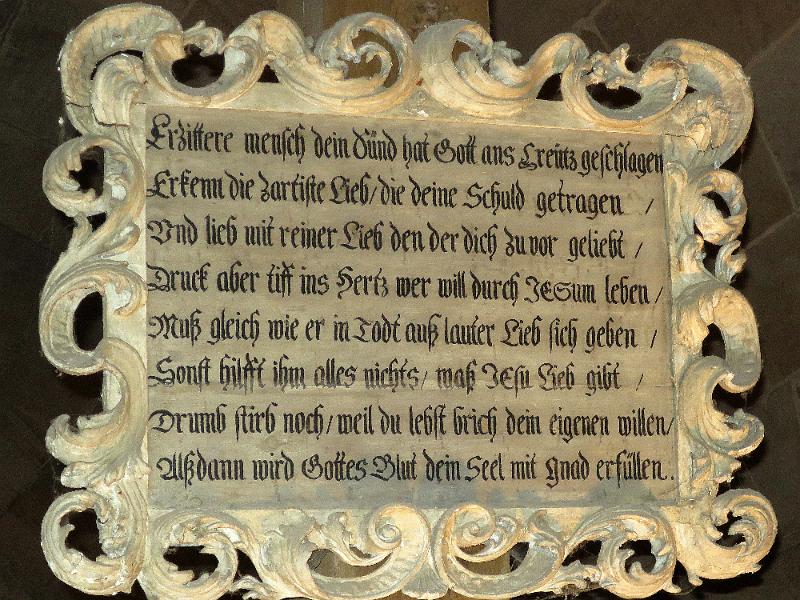 Erzittere mensch dein Sünd hat Gott ans Creütz geschlagen
Erkenn die zartiste Lieb/ die deine Schuld getragen /
Vnd lieb mit reiner Lieb den der dich zuvor geliebt /
Druck aber tiff ins Hertz wer will durch JESum leben /
Muß gleich wie er in Todt auß lauter Lieb sich geben /
Sonst hilfft ihm alles nichts/ waß JEsu Lieb gibt /
Drumb stirb noch/ weil du lebst brich dein eigenen willen/
Alßdann wird Gottes Blut dein Seel mit gnad erfüllen.